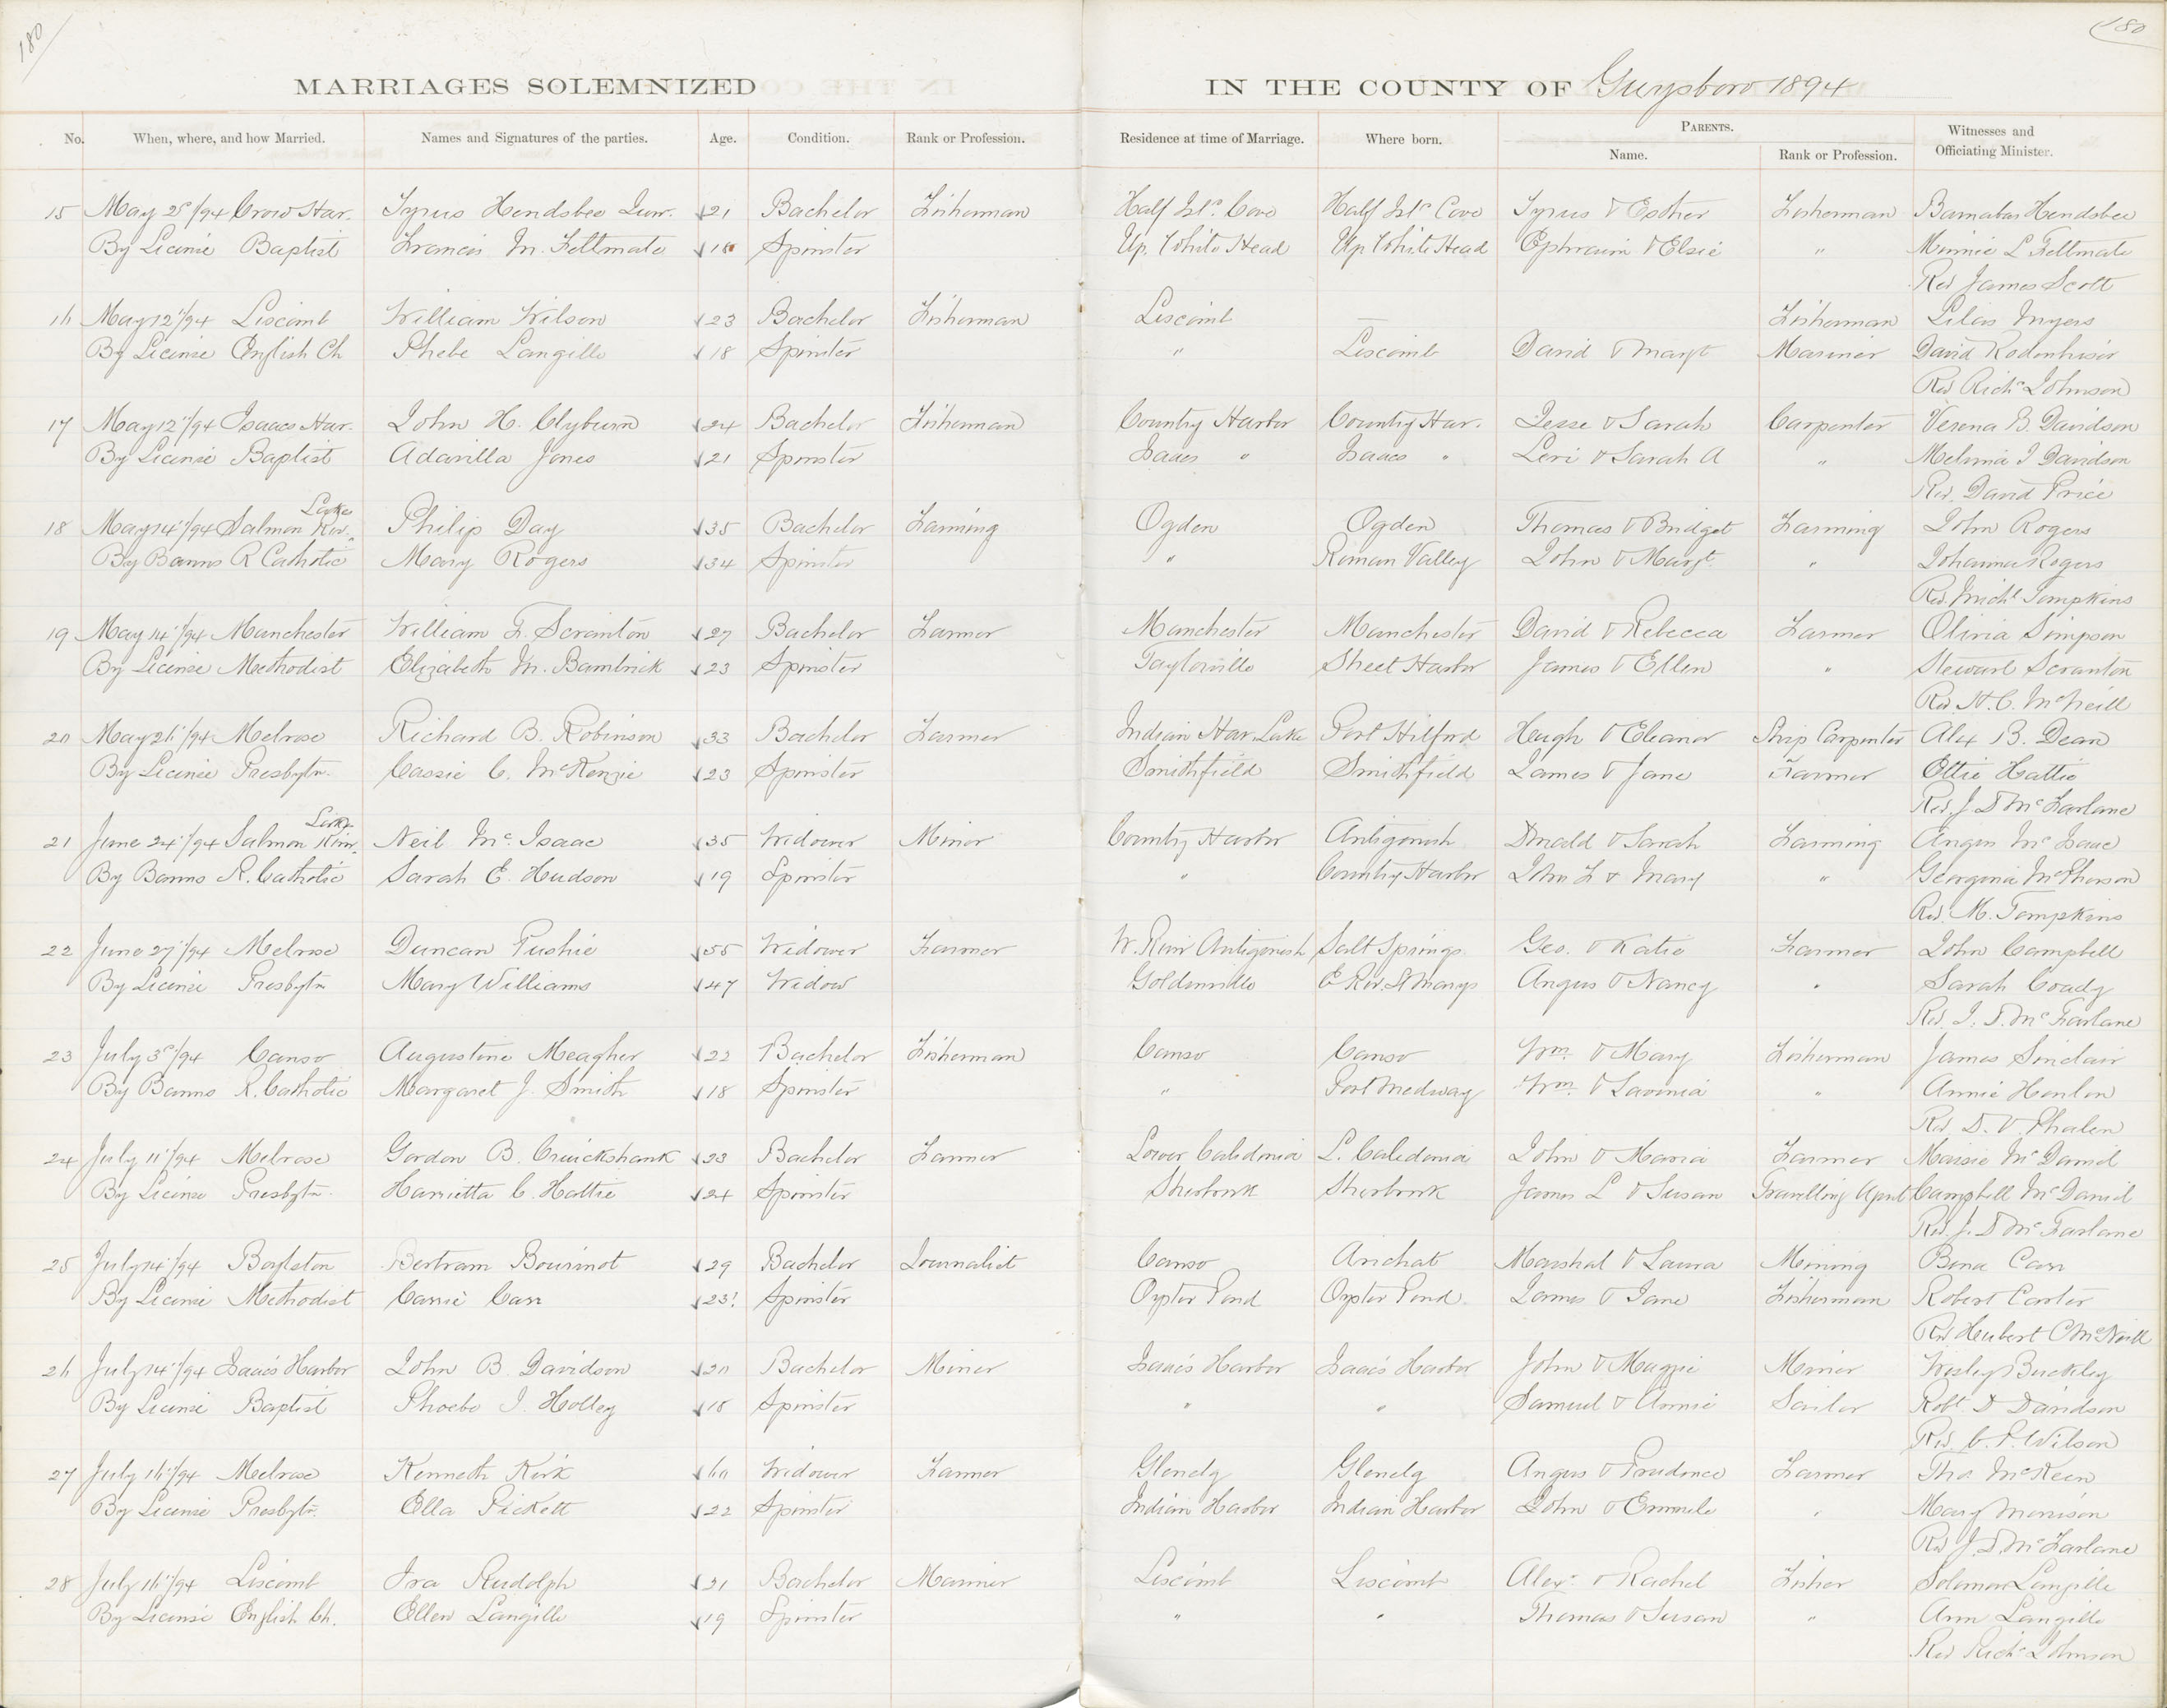 180
180
MARRIAGES SOLEMNIZED IN THE COUNTY OF Guysboro 1894
No. When, where, and how Married. Names and Signatures of the parties. Age. Condition. Rank or Profession. Residence at time of Marriage. Where born. PARENTS. Name. Rank or Profession. Witnesses and Officiating Minister.
15 May 2d/94 Crow Har. Syrus Hendsbee Junr. 21 Bachelor Fisherman Half Isld Cove Half Isld Cove Syrus & Esther Fisherman Barnabas Hendsbee
By License Baptist Francis M. Feltmate 18 Spinster Up. White Head Up. White Head Ephraim & Elsie " Minnie L Feltmate
Rev James Scott
16 May 12"/94 Liscomb William Wilson 23 Bachelor Fisherman Liscomb — Fisherman Lilas Myers
By License English Ch Phebe Langille 18 Spinster " Liscomb David & Margt Mariner David Rodenhiser
Rev Richd Johnson
17 May 12"/94 Isaacs Har. John H. Clyburn 24 Bachelor Fisherman Country Harbor Country Har. Jesse & Sarah Carpenter Verena B. Davidson
By License Baptist Adavilla Jones 21 Spinster Isaacs " Isaacs " Levi & Sarah A " Melvina J Davidson
Rev. David Price
Lake
18 May 14"/94 Salmon Riv. Philip Day 35 Bachelor Farming Ogden Ogden Thomas & Bridget Farming John Rogers
By Banns R Catholic Mary Rogers 34 Spinster " Roman Valley John & Margt. " Johanna Rogers
Rev. Michl Tompkins
19 May 14"/94 Manchester William F. Scranton 27 Bachelor Farmer Manchester Manchester David & Rebecca Farmer Olivia Simpson
By License Methodist Elizabeth M. Bambrick 23 Spinster Taylorville Sheet Harbor James & Ellen " Stewart Scranton
Rev. H. C. McNeill
20 May 26"/94 Melrose Richard B. Robinson 33 Bachelor Farmer Indian Har. Lake Port Hilford Hugh & Eleanor Ship Carpenter Alex B. Dean
By License Presbytn. Cassie C. McKenzie 23 Spinster Smithfield Smithfield James & Jane Farmer Ettie Hattie
Rev. J. D McFarlane
Lake
21 June 24"/94 Salmon River Neil McIsaac 35 Widower Miner Country Harbor Antigonish Donald & Sarah Farming Angus McIsaac
By Banns R. Catholic Sarah E. Hudson 19 Spinster " Country Harbor John F & Mary " Georgina McPherson
Rev. M. Tompkins
22 June 27"/94 Melrose Duncan Pushie 55 Widower Farmer W. River Antigonish Salt Springs Geo. & Katie Farmer John Campbell
By License Presbytn Mary Williams 47 Widow Goldenville E Riv. St Marys Angus & Nancy " Sarah Coady
Rev. J. D. McFarlane
23 July 3d/94 Canso Augustine Meagher 22 Bachelor Fisherman Canso Canso Wm. & Mary Fisherman James Sinclair
By Banns R. Catholic Margaret J. Smith 18 Spinster " Port Medway Wm. & Lavinia " Annie Hanlon
Rev D. V. Phalen
24 July 11"/94 Melrose Gordon B. Cruickshank 23 Bachelor Farmer Lower Caledonia L. Caledonia John & Maria Farmer Maisie McDavid
By License Presbytn. Harrietta C. Hattie 24 Spinster Sherbrook Sherbrook James L & Susan Travelling Agent Campbell McDavid
Rev. J. D McFarlane
25 July 14"/94 Boylston Bertram Bourinot 29 Bachelor Journalist Canso Arichat Marshal & Laura Mining Bena Carr
By License Methodist Carrie Carr 23 Spinster Oyster Pond Oyster Pond James & Jane Fisherman Robert Carter
Rev Herbert C McNeill
26 July 14"/94 Isaacs Harbor John B. Davidson 20 Bachelor Miner Isaacs Harbor Isaacs Harbor John & Maggie Miner Wesley Buckley
By License Baptist Phoebe J. Holley 18 Spinster " " Samuel & Annie Sailor Robt. D Davidson
Rev. C. P. Wilson
27 July 16"/94 Melrose Kenneth Kirk 60 Widower Farmer Glenelg Glenelg Angus & Prudence Farmer Thos. McKeen
By License Presbytn. Ella Pickett 22 Spinster Indian Harbor Indian Harbor John & " Mary Morrison
Rev J. D McFarlane
28 July 16"/94 Liscomb Ira Rudolph 21 Bachelor Mariner Liscomb Liscomb Alexr. & Rachel Fisher Soloman Langille
By License English Ch. Ellen Langille 19 Spinster " " Thomas & Susan " Ann Langille
Rev Richd Johnson